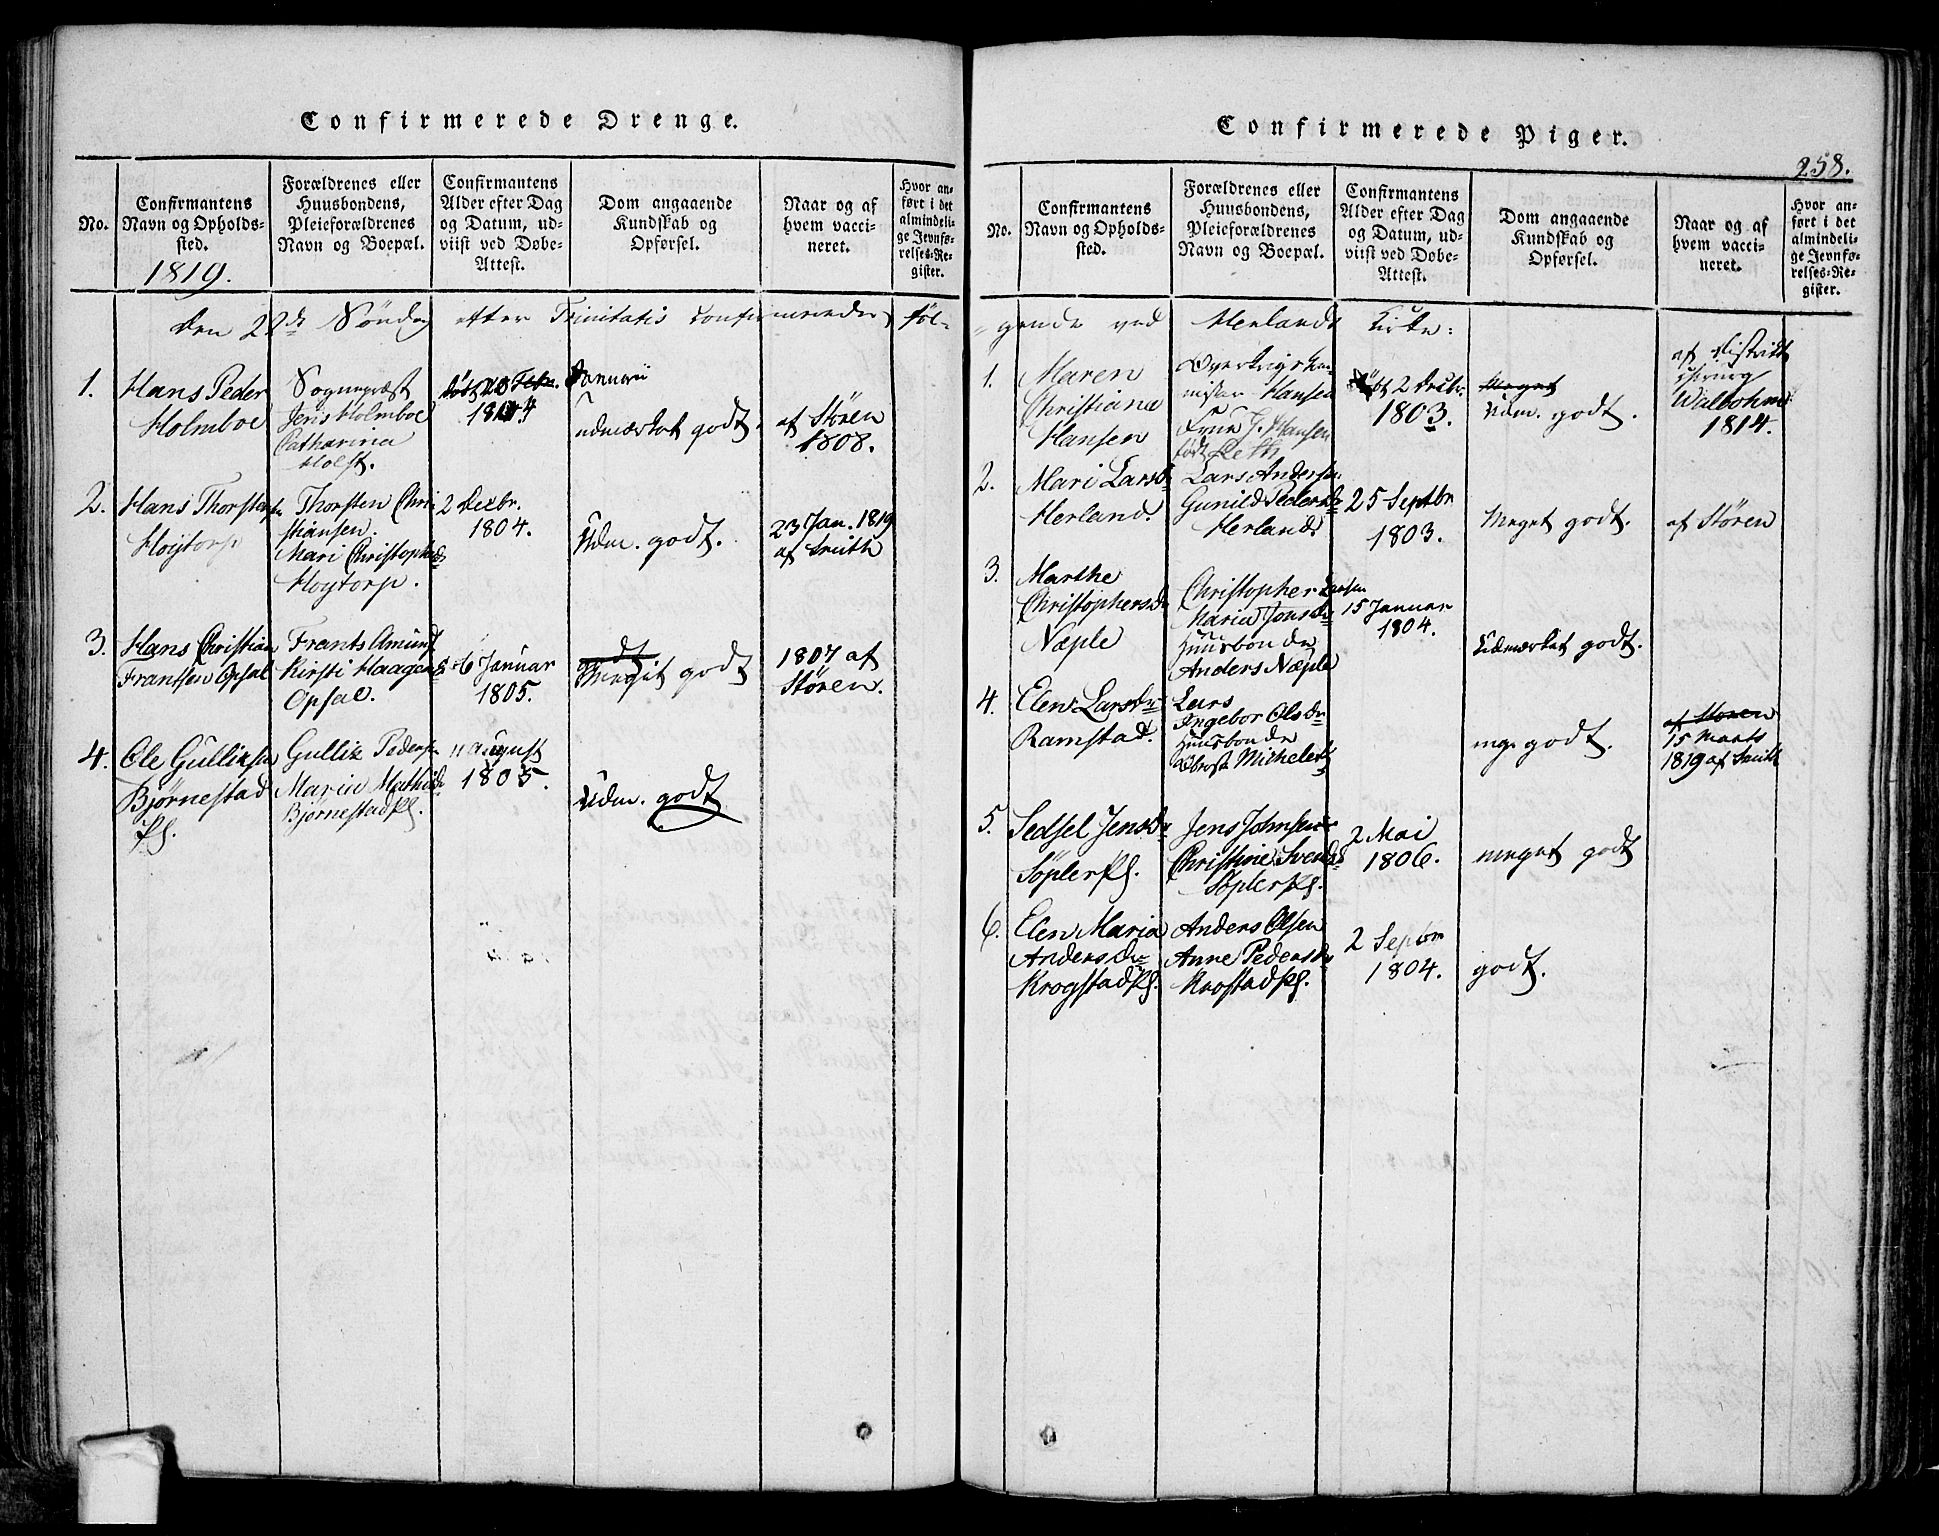 Confirmerede Drenge.
No.
Confirmantens
Navn og Opholds-
sted.
1819.
Forældrenes eller
Huusbondens,
Pleieforældrenes
Navn og Boepæl.
Confirmantens
Alder efter Dag
og Datum, ud-
viist ved Døbe-
Attest.
Dom angaaende
Kundskab og
Opførsel.
Naar og af
hvem vacci-
neret.
Hvor an-
ført i det
almindeli-
ge Jevnfø-
relses-Re-
gister.
Den 22de Søndag efter Trinitatis confirmeredes føl-
1.
Hans Peder
Holmboe
Sognepræst
Jens Holmboe
Catharina
Holst.
født 20 Febr. Januarii
1804
udmærket godt.
af Støren
1808.
2.
Hans Thorstens.
Hoytorp
Thorsten Chri
stiansen.
Mari Christophsdr
Hoytorp.
2 Decbr.
1804.
Udm. godt.
23 Jan. 1819
af Smith
3.
Hans Christian
Frantsen Opsal
Frants Amunds.
Kirsti Haagensdr
Opsal.
6 Januar
1805.
godt
Meget godt
1807 af
Støren.
4.
Ole Gulliksen
Bjørnestad
Pl.
Gullik Peders.
Maria Mathisdr
Bjørnestad Pl.
11 august
1805.
Udm. godt
Confirmerede Piger.
258.
No.
Confirmantens
Navn og Opholds-
sted.
Forældrenes eller
Huusbondens,
Pleieforældrenes
Navn og Boepæl.
Confirmantens
Alder efter Dag
og Datum, ud-
viist ved Døbe-
Attest.
Dom angaaende
Kundskab og
Opførsel.
Naar og af
hvem vacci-
neret.
Hvor an-
ført i det
almindeli-
ge Jevnfø-
relses-Re-
gister.
-gende ved Herlands Kirke:
1.
Maren
Christiana
Hansen
Overkrigskom-
misær Hansen
Hansen
født
født 2 Decbr.
1803.
Meget
Udm. godt.
af District
chirurg
Walbohm
1814.
2.
Mari Larsdr
Herland.
Lars Anders.
Gunild Pedersdr
Herland.
25 Septbr
1803.
Meget godt.
af Støren
3.
Marthe
Christophersdr
Næple
Christopher Larsen
Maria Jonsdr
Huusbonde
Anders Næple
15 Januar
1804.
Udmærket godt.
4.
Elen Larsdr
Ramstad.
Lars
Ingebor Olsdr
Huusbonde
Michelet
meg. godt.
af Støren
15 Marts
1819 af Smith
5.
Sedsel Jensdr
Søpler Pl.
Jens Johnsen
Christine Svendsdr
Søpler Pl.
2 Mai
1806.
meget godt
6.
Elen Maria
Andersdr
Krogstad Pl.
Anders Olsen
Anne Pedersdr
Krostad Pl.
2 Septbr
1804.
godt.